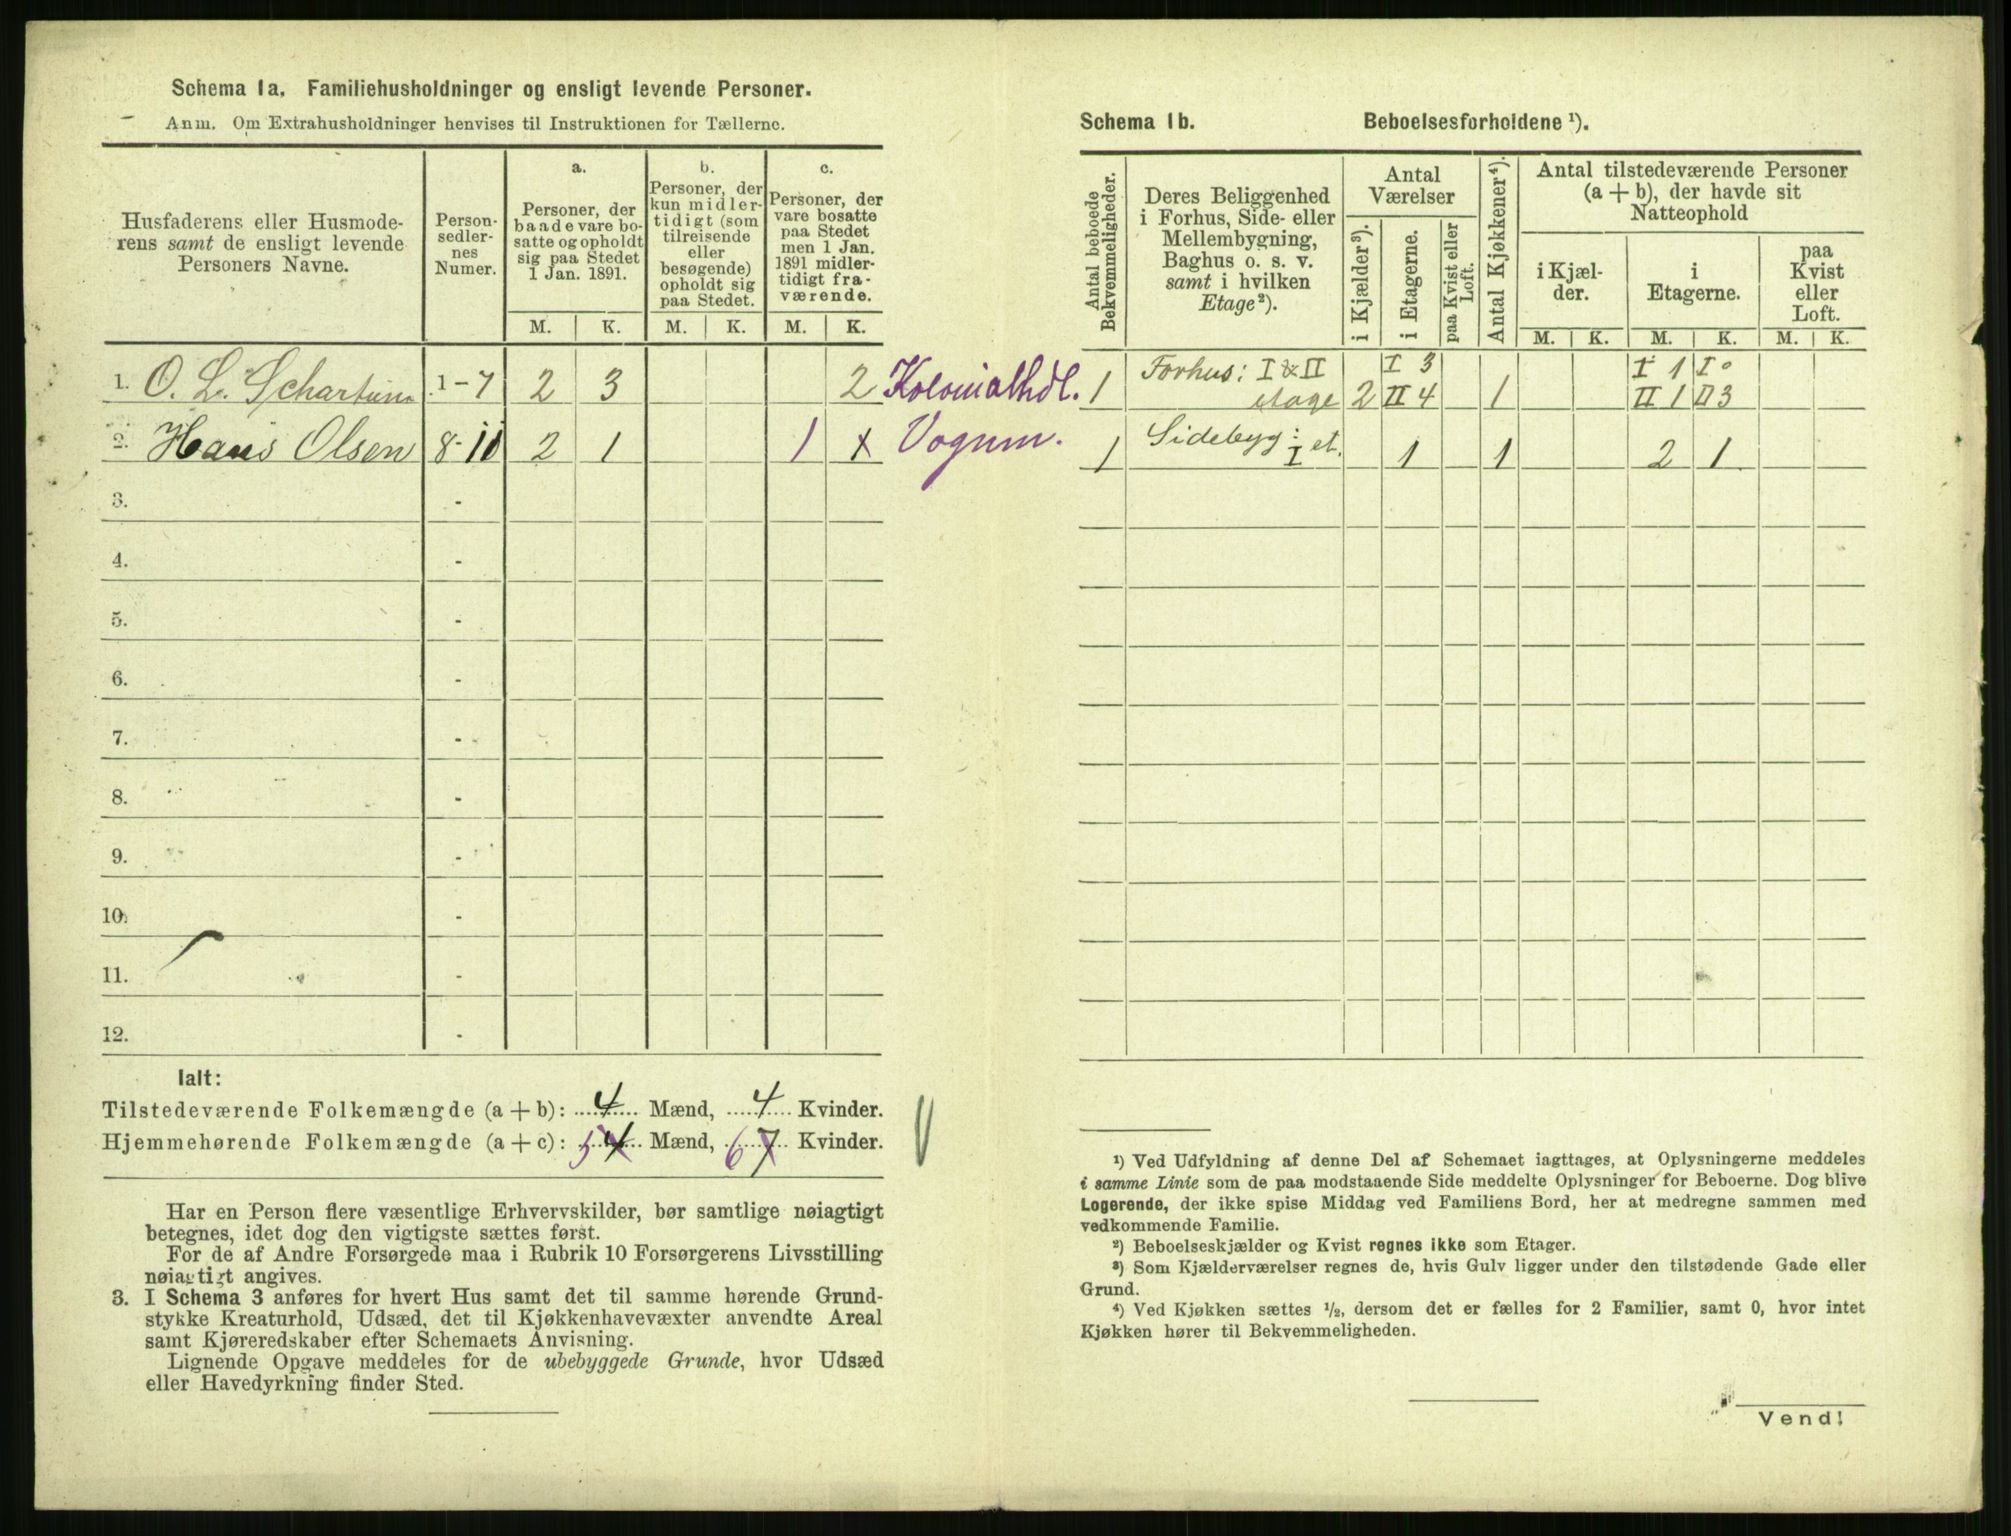 Schema 1a. Familiehusholdninger og ensligt levende Personer.
Anm. Om Extrahusholdninger henvises til Instruktionen for Tællerne.
Husfaderens eller Husmode-
rens samt de ensligt levende
Personers Navne.
Person-
sedler-
nes
Numer.
a.
Personer, der
baade vare bo-
satte og opholdt
sig paa Stedet
1 Jan. 1891.
b.
Personer, der
kun midler-
tidigt (som
tilreisende
eller
besøgende)
opholdt sig
paa Stedet.
c.
Personer, der
vare bosatte
paa Stedet
men 1 Jan.
1891 midler-
tidigt fra-
værende.
M. K. M. K. M. K.
1. O. L. Schartum 1-7 2 3 2 Kolonialhdl.
2. Hans Olsen 8-11 2 1 1 x Vognm.
3. -
4. -
5. -
6. -
7. -
8. -
9. -
10. -
11. -
12. -
Ialt:
Tilstedeværende Folkemængde (a + b): 4 Mænd, 4 Kvinder.
Hjemmehørende Folkemængde (a + c): 5 4 Mænd, 6 7 Kvinder.
Har en Person flere væsentlige Erhvervskilder, bør samtlige nøiagtigt
betegnes, idet dog den vigtigste sættes først.
For de af Andre Forsørgede maa i Rubrik 10 Forsørgerens Livsstilling
nøiagtigt angives.
3. I Schema 3 anføres for hvert Hus samt det til samme hørende Grund-
stykke Kreaturhold, Udsæd, det til Kjøkkenhavevæxter anvendte Areal
samt Kjøreredskaber efter Schemaets Anvisning.
Lignende Opgave meddeles for de ubebyggede Grunde, hvor Udsæd
eller Havedyrkning finder Sted.
Schema 1b. Beboelsesforholdene ¹).
Antal beboede
Bekvemmeligheder.
Deres Beliggenhed
i Forhus, Side- eller
Mellembygning,
Baghus o. s. v.
samt i hvilken
Etage²).
Antal
Værelser
i Kjælder³).
i Etagerne.
paa Kvist eller
Loft.
Antal Kjøkkener⁴).
Antal tilstedeværende Personer
(a + b), der havde sit
Natteophold
i Kjæl-
der.
i
Etagerne.
paa
Kvist
eller
Loft.
M. K. M. K. M. K.
Forhus: I & II I 3 I 1 I 0
1 etage 2 II 4 1 II 1 II 3
1 Sidebyg: I et. 1 1 2 1
¹) Ved Udfyldning af denne Del af Schemaet iagttages, at Oplysningerne meddeles
i samme Linie som de paa modstaaende Side meddelte Oplysninger for Beboerne. Dog blive
Logerende, der ikke spise Middag ved Familiens Bord, her at medregne sammen med
vedkommende Familie.
²) Beboelseskjælder og Kvist regnes ikke som Etager.
³) Som Kjælderværelser regnes de, hvis Gulv ligger under den tilstødende Gade eller
Grund.
⁴) Ved Kjøkken sættes ½, dersom det er fælles for 2 Familier, samt 0, hvor intet
Kjøkken hører til Bekvemmeligheden.
Vend!